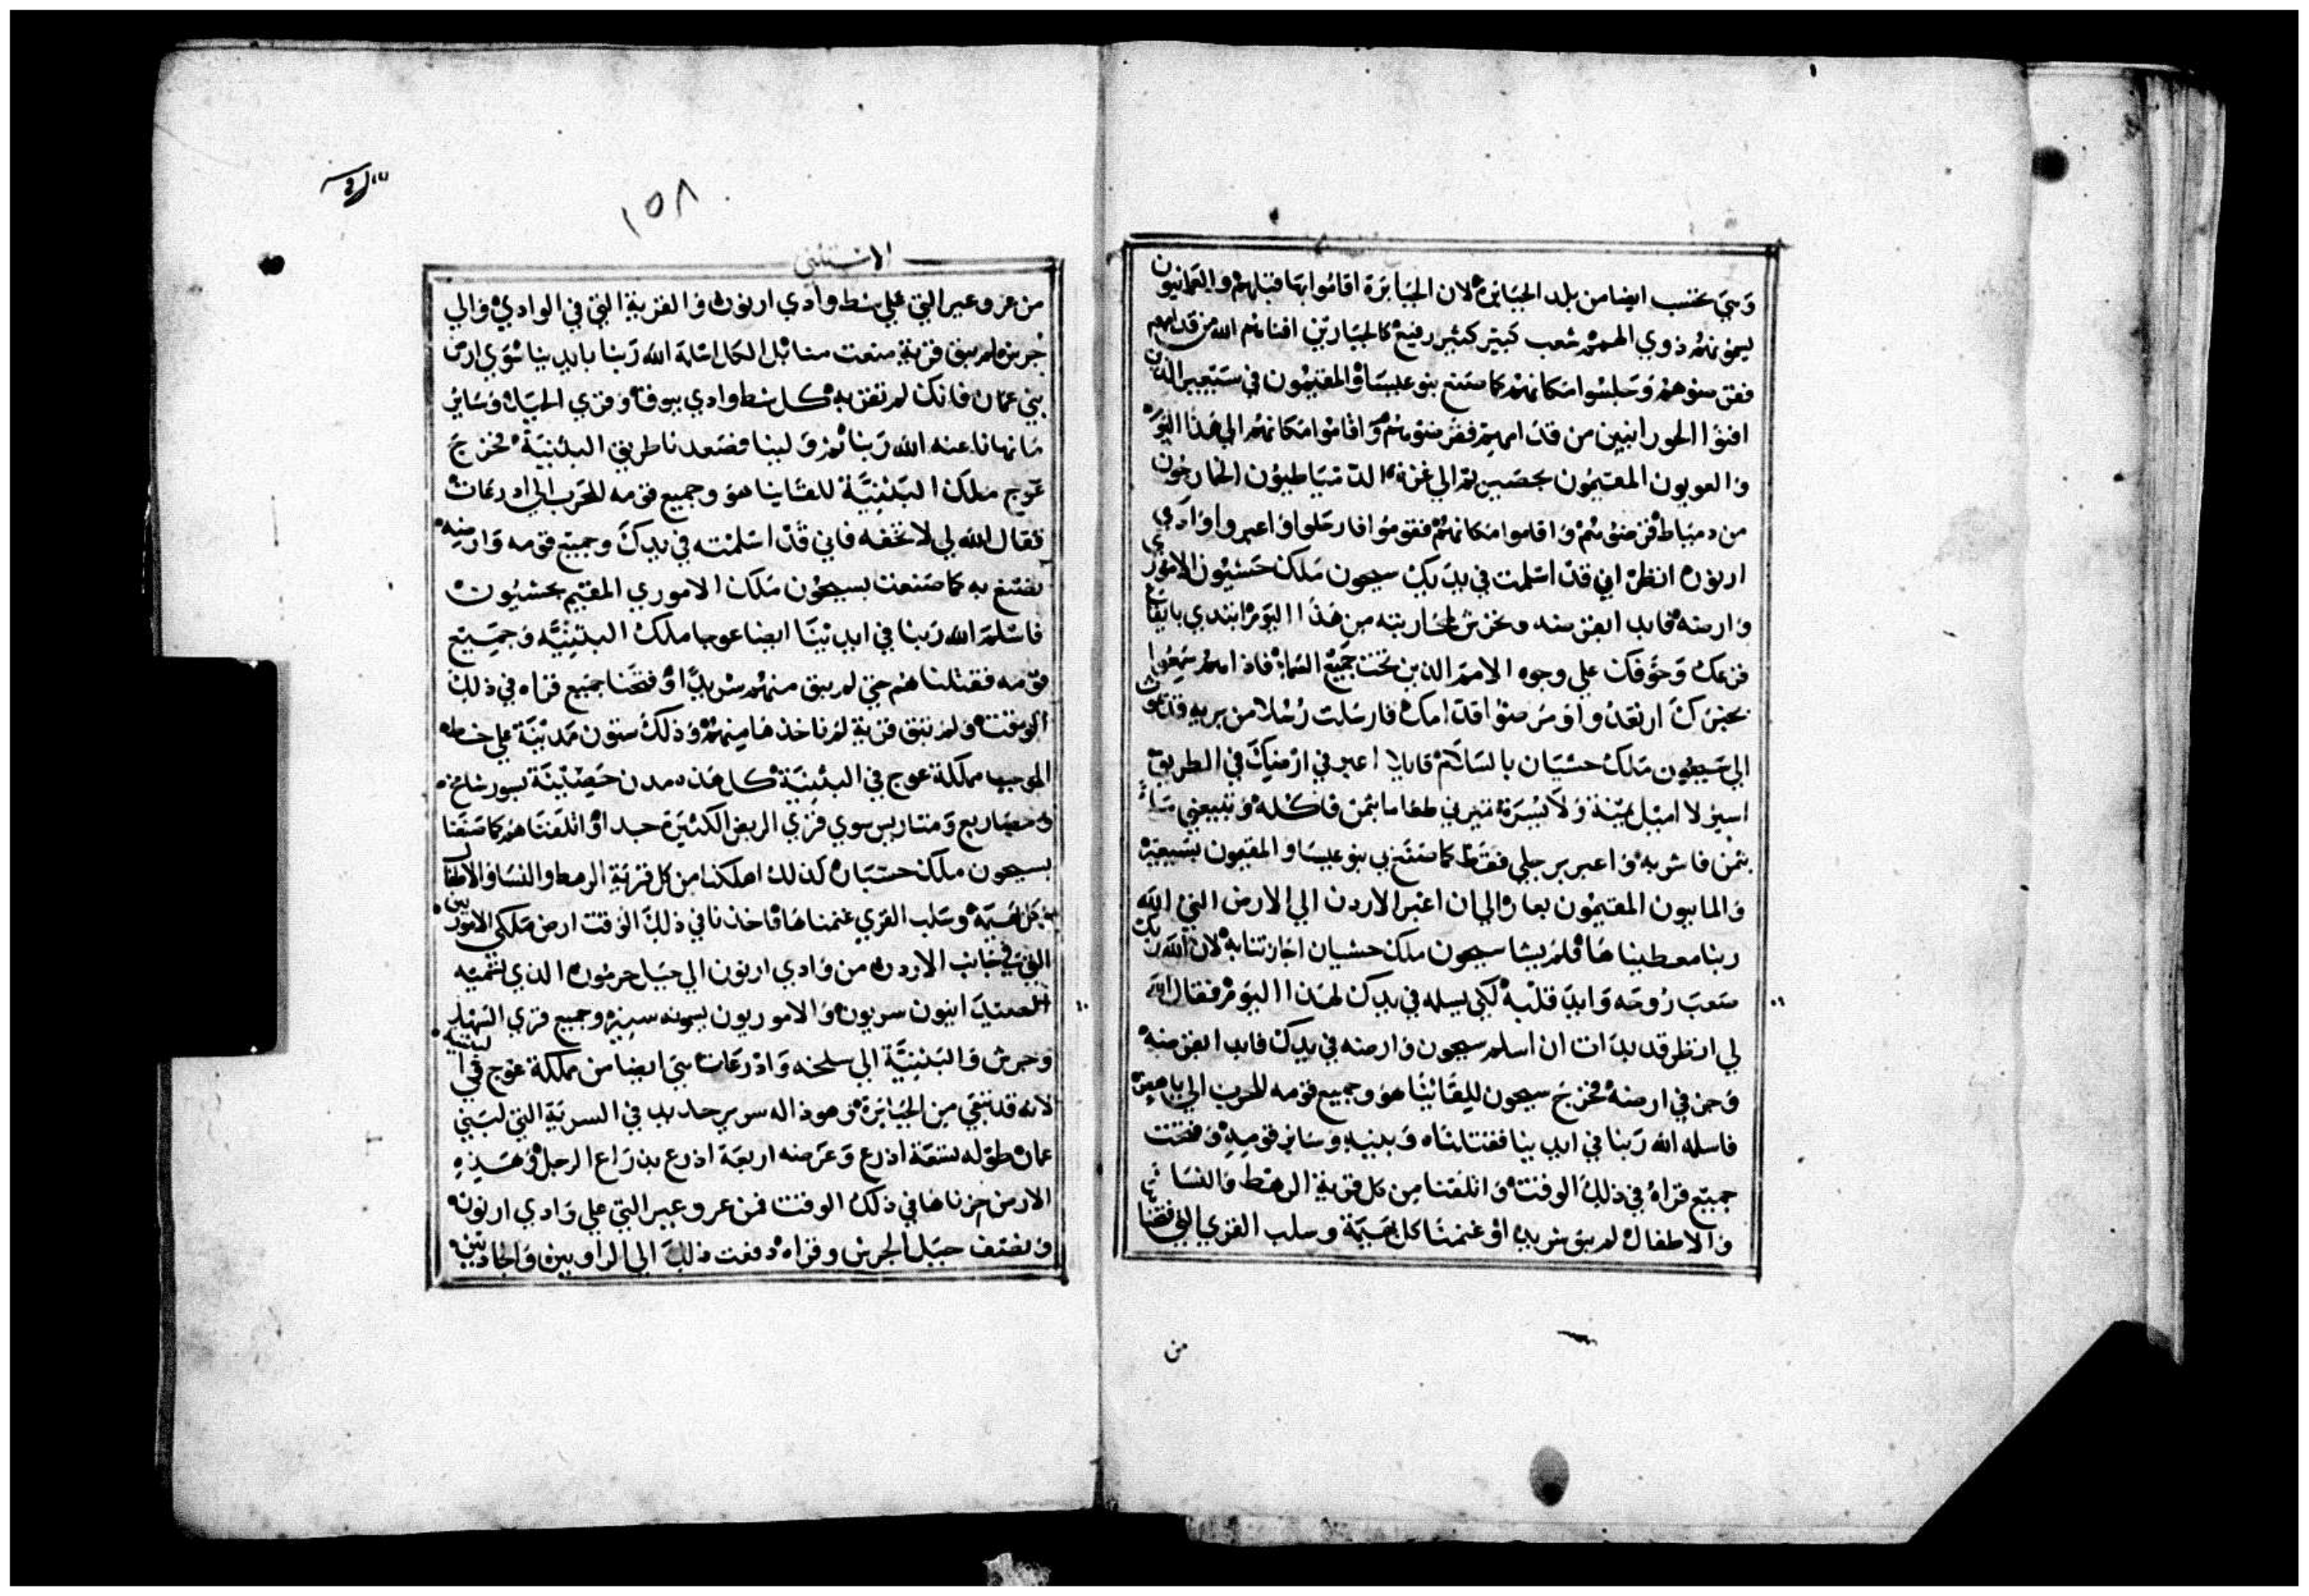 وهي تحتسب ايضا من بلد الجبابرة لان الجبابرة اقاموا بها قبلهم والعمانيون
يسمونهم ذوي الهمم شعب كبير كثير رفيع كالجبارين افناهم الله من قدامهم
فقرضوهم وجلسوا مكانهم كما صنع بنو عيسا والمقيمون في سيعير الذين
افنوا الحورانيين من قدامهم فقرضوهم واقاموا مكانهم الي هذا اليوم
والعويون المقيمون بحصيرتم الي غزة الدمياطيون الخارجون
من دمياط قرضوهم واقاموا مكانهم فقوموا فارحلوا واعبروا وادي
ارنون انظر اني قد اسلمت في يديك سيحون ملك حشبون الاموري
وارضه فابد القرضه وتحرش لمحاربته من هذا اليوم ابتدي بايقاع
فزعك وخوفك علي وجوه الامم الذين تحت جميع السما فاذا هم سمعوا
بخبرك ارتعدوا ومرضوا قدامك فارسلت رسلا من برية قدموث
الي سيحون ملك حشبان بالسلام قايلا اعبر في ارضك في الطريق
اسير لا اميل يمنة ولا يسرة تميرني طعاما بثمن فاكله وتبيعني ماء
بثمن فاشربه واعبر برجلي فقط كما صنع بي بنو عيسا والمقيمون بسيعير
والمابيون المقيمون بعار الي ان اعبر الاردن الي الارض التي الله
ربنا معطيناها فلم يشا سيحون ملك حشبان اجازتنا به لان الله ربك
صعب روحه وايد قلبه لكي يسلمه في يدك لهذا اليوم فقال الله
لي انظر قد بدات ان اسلم سيحون وارضه في يدك فابد القرضه
وحز في ارضه فخرج سيحون للقائنا هو وجميع قومه للحرب الي ياهص
فاسلمه الله ربنا في ايدينا فقتلناه وبنيه وساير قومه وفتحت
جميع قراه في ذلك الوقت واتلفنا من كل قرية الرهط والنسا
والاطفال لم يبق شريدا وغنمنا كل بهيمة وسلب القري التي فتحنا
من
١٥٨
الاستثني
من عروعير التي علي شط وادي ارنون والقرية التي في الوادي والي
جرش لم يبق قرية منعت منا بل الكل اسلمه الله ربنا بايدينا سوي ارض
بني عمان فانك لم تقربه كل شط وادي يبوق وقري الجبل وساير
ما نهانا عنه الله ربنا ثم ولينا فصعدنا طريق البثنية فخرج
عوج ملك البثنية للقاينا هو وجميع قومه للحرب الي ادرعات
فقال الله لي لا تخفه فاني قد اسلمته في يدك وجميع قومه وارضه
تصنع به كما صنعت بسيحون ملك الاموري المقيم بحشبون
فاسلم الله ربنا في ايدينا ايضا عوجا ملك البثنية وجميع
قومه فقتلناهم حتي لم يبق منهم شريدا وفتحنا جميع قراه في ذلك
الوقت ولم تبق قرية لم ناخذها منهم وذلك ستون مدينة علي خطه
الموجب مملكة عوج في البثنية كل هذه مدن حصينة بسور شامخ
ومصاريع ومتاريس سوي قري الربض الكثيرة جدا واتلفناهم كما صنعنا
بسيحون ملك حشبان كذلك اهلكنا من كل قرية الرهط والنسا والاطفال
كل بهيمة وسلب القري غنمناها فاخذنا في ذلك الوقت ارض ملكي الاموريين
التي في جانب الاردن من وادي ارنون الي جبل حرمون الذي تسميه
الصيدانيون سريون والاموريون يسمونه سينير وجميع قري السهل
وجرش والبثنية الي سلخه وادرعات هي ايضا من مملكة عوج في البثنية
لانه قد تبقي من الجبابرة وهوذا له سرير حديد في السرية التي لبني
عمان طوله تسعة اذرع وعرضه اربعة اذرع بذراع الرجل وهذه
الارض حزناها في ذلك الوقت فمن عروعير التي علي وادي ارنون
ونصف جبل الجرش وقراه دفعت ذلك الي الراوبين والجاديين